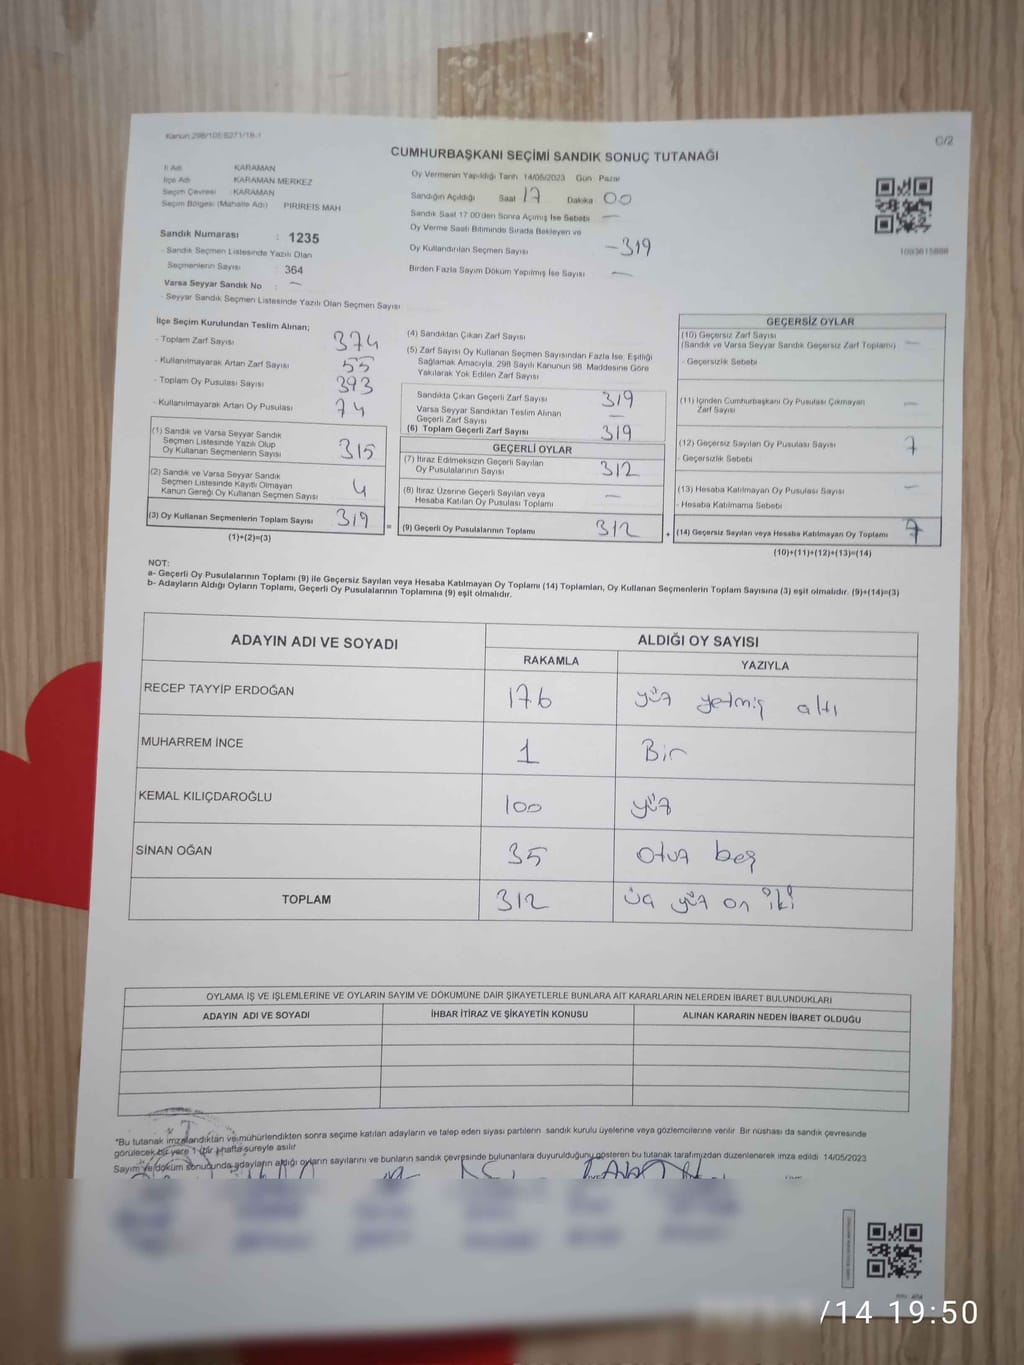 Kanun 298/105/6271/18-1
C/2
CUMHURBAŞKANI SEÇİMİ SANDIK SONUÇ TUTANAĞI
İl Adı KARAMAN
İlçe Adı KARAMAN MERKEZ
Seçim Çevresi : KARAMAN
Seçim Bölgesi (Mahalle Adı) PIRIREIS MAH
Sandık Numarası : 1235
- Sandık Seçmen Listesinde Yazılı Olan
Seçmenlerin Sayısı : 364
Varsa Seyyar Sandık No : —
- Seyyar Sandık Seçmen Listesinde Yazılı Olan Seçmen Sayısı
Oy Vermenin Yapıldığı Tarih 14/05/2023 Gün Pazar
Sandığın Açıldığı Saat 17 Dakika 00
Sandık Saat 17.00'den Sonra Açımış İse Sebebi —
Oy Verme Saati Bitiminde Sırada Bekleyen ve
Oy Kullandırılan Seçmen Sayısı -319
Birden Fazla Sayım Döküm Yapılmış İse Sayısı —
İlçe Seçim Kurulundan Teslim Alınan;
- Toplam Zarf Sayısı 374
- Kullanılmayarak Artan Zarf Sayısı 55
- Toplam Oy Pusulası Sayısı 393
- Kullanılmayarak Artan Oy Pusulası 74
(1) Sandık ve Varsa Seyyar Sandık
Seçmen Listesinde Yazılı Olup
Oy Kullanan Seçmenlerin Sayısı 315
(2) Sandık ve Varsa Seyyar Sandık
Seçmen Listesinde Kayıtlı Olmayan
Kanun Gereği Oy Kullanan Seçmen Sayısı 4
(3) Oy Kullanan Seçmenlerin Toplam Sayısı 319 =
(1)+(2)=(3)
(4) Sandıktan Çıkan Zarf Sayısı
(5) Zarf Sayısı Oy Kullanan Seçmen Sayısından Fazla İse, Eşitliği
Sağlamak Amacıyla, 298 Sayılı Kanunun 98. Maddesine Göre
Yakılarak Yok Edilen Zarf Sayısı
Sandıkta Çıkan Geçerli Zarf Sayısı 319
Varsa Seyyar Sandıktan Teslim Alınan
Geçerli Zarf Sayısı —
(6) Toplam Geçerli Zarf Sayısı 319
GEÇERLİ OYLAR
(7) İtiraz Edilmeksizin Geçerli Sayılan
Oy Pusulalarının Sayısı 312
(8) İtiraz Üzerine Geçerli Sayılan veya
Hesaba Katılan Oy Pusulası Toplamı —
(9) Geçerli Oy Pusulalarının Toplamı 312 +
GEÇERSİZ OYLAR
(10) Geçersiz Zarf Sayısı
(Sandık ve Varsa Seyyar Sandık Geçersiz Zarf Toplamı) —
- Geçersizlik Sebebi
(11) İçinden Cumhurbaşkanı Oy Pusulası Çıkmayan
Zarf Sayısı —
(12) Geçersiz Sayılan Oy Pusulası Sayısı 7
- Geçersizlik Sebebi
(13) Hesaba Katılmayan Oy Pusulası Sayısı —
- Hesaba Katılmama Sebebi
(14) Geçersiz Sayılan veya Hesaba Katılmayan Oy Toplamı 7
(10)+(11)+(12)+(13)=(14)
NOT:
a- Geçerli Oy Pusulalarının Toplamı (9) ile Geçersiz Sayılan veya Hesaba Katılmayan Oy Toplamı (14) Toplamları, Oy Kullanan Seçmenlerin Toplam Sayısına (3) eşit olmalıdır. (9)+(14)=(3)
b- Adayların Aldığı Oyların Toplamı, Geçerli Oy Pusulalarının Toplamına (9) eşit olmalıdır.
ADAYIN ADI VE SOYADI ALDIĞI OY SAYISI
RAKAMLA YAZIYLA
RECEP TAYYİP ERDOĞAN 176 yüz yetmiş altı
MUHARREM İNCE 1 Bir
KEMAL KILIÇDAROĞLU 100 yüz
SİNAN OĞAN 35 Otuz beş
TOPLAM 312 üç yüz on iki
OYLAMA İŞ VE İŞLEMLERİNE VE OYLARIN SAYIM VE DÖKÜMÜNE DAİR ŞİKAYETLERLE BUNLARA AİT KARARLARIN NELERDEN İBARET BULUNDUKLARI
ADAYIN ADI VE SOYADI İHBAR İTİRAZ VE ŞİKAYETİN KONUSU ALINAN KARARIN NEDEN İBARET OLDUĞU
*Bu tutanak imzalandıktan ve mühürlendikten sonra seçime katılan adayların ve talep eden siyasi partilerin sandık kurulu üyelerine veya gözlemcilerine verilir. Bir nüshası da sandık çevresinde
görülecek bir yere 1 (bir) hafta süreyle asılır
Sayım ve döküm sonucunda adayların aldığı oyların sayılarını ve bunların sandık çevresinde bulunanlara duyurulduğunu gösteren bu tutanak tarafımızdan düzenlenerek imza edildi. 14/05/2023
/14 19:50